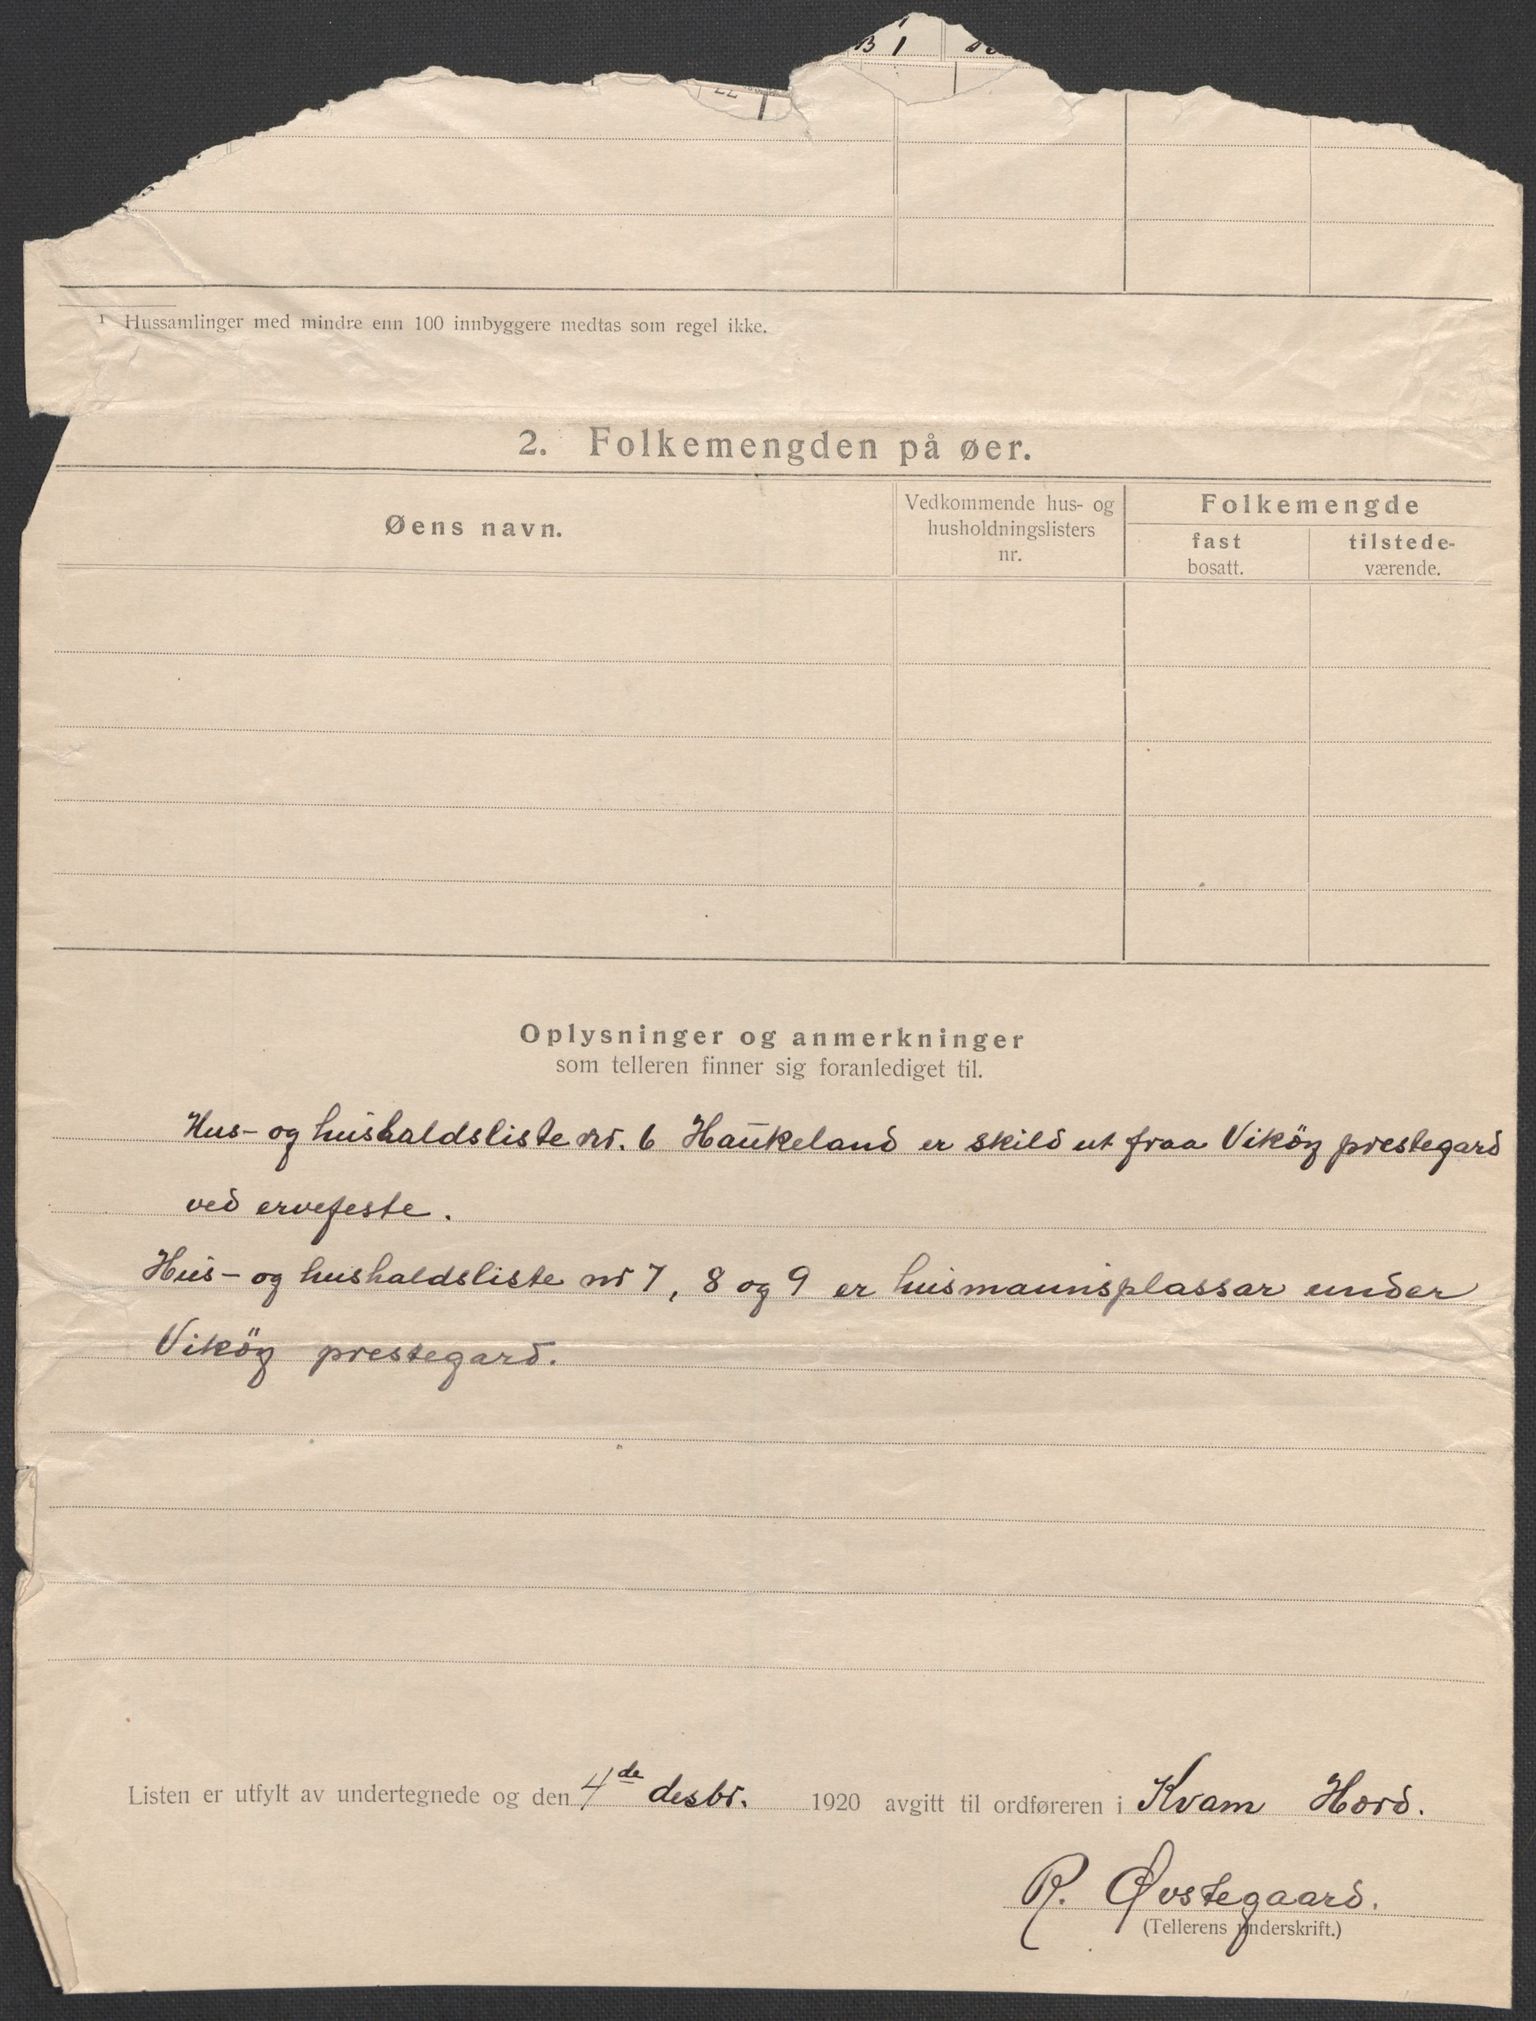 B 1
22
¹ Hussamlinger med mindre enn 100 innbyggere medtas som regel ikke.
2. Folkemengden på øer.
Øens navn.
Vedkommende hus- og
husholdningslisters
nr.
Folkemengde
fast
bosatt.
tilstede-
værende.
Oplysninger og anmerkninger
som telleren finner sig foranlediget til.
Hus- og hushaldsliste nr. 6 Haukeland er skild ut fraa Viköy prestegard
ved ervefeste.
Hus- og hushaldsliste nr 7, 8 og 9 er husmannsplassar under
Viköy prestegard.
Listen er utfylt av undertegnede og den 4de desbr. 1920 avgitt til ordføreren i Kvam Hord.
R. Øvstegaard.
(Tellerens underskrift.)